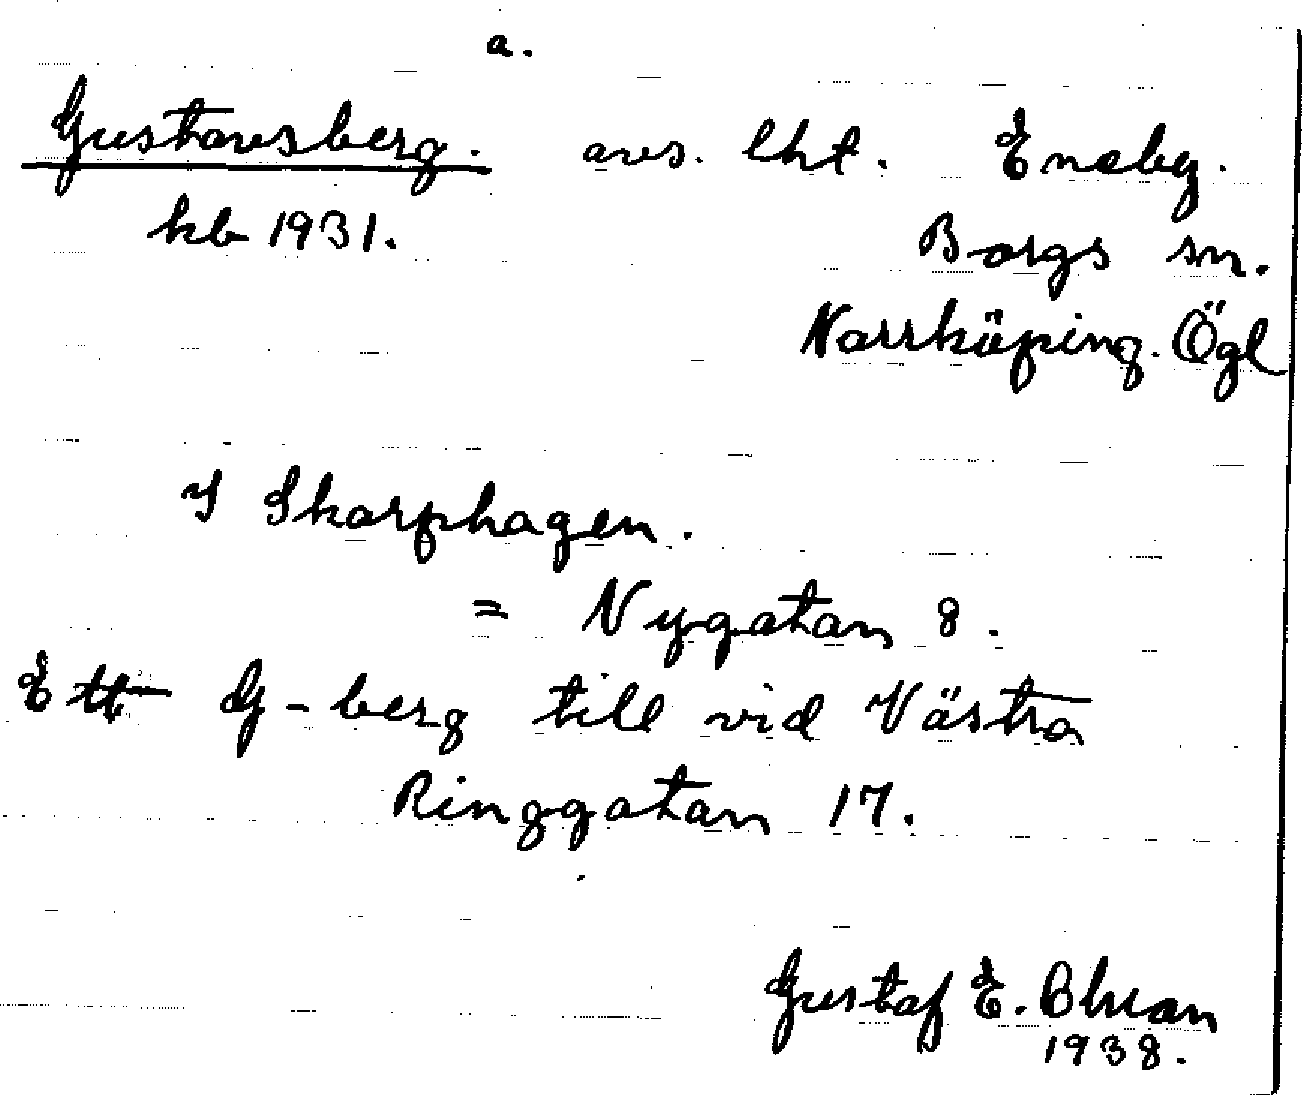 a.
Gustavsberg. avs. lht. Eneby.
kb 1931. Borgs sn.
Norrköping. Ögl
I Skarphagen.
= Nygatan 8.
Ett G-berg till vid Västra
Ringgatan 17.
Gustaf E.
1938.